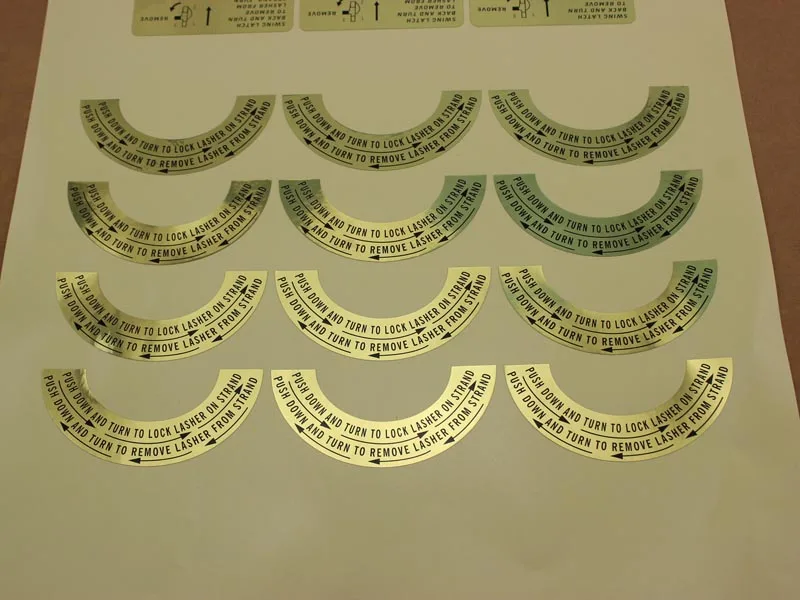 SWING LATCH
BACK AND TURN
TO REMOVE
LASHER FROM
REMOVE
SWING LATCH
BACK AND TURN
TO REMOVE
LASHER FROM
REMOVE
SWING LATCH
BACK AND TURN
TO REMOVE
REMOVE
PUSH DOWN AND TURN TO LOCK LASHER ON STRAND
PUSH DOWN AND TURN TO REMOVE LASHER FROM STRAND
PUSH DOWN AND TURN TO LOCK LASHER ON STRAND
PUSH DOWN AND TURN TO REMOVE LASHER FROM STRAND
PUSH DOWN AND TURN TO LOCK LASHER ON STRAND
PUSH DOWN AND TURN TO REMOVE LASHER FROM STRAND
PUSH DOWN AND TURN TO LOCK LASHER ON STRAND
PUSH DOWN AND TURN TO REMOVE LASHER FROM STRAND
PUSH DOWN AND TURN TO LOCK LASHER ON STRAND
PUSH DOWN AND TURN TO REMOVE LASHER FROM STRAND
PUSH DOWN AND TURN TO LOCK LASHER ON STRAND
PUSH DOWN AND TURN TO REMOVE LASHER FROM STRAND
PUSH DOWN AND TURN TO LOCK LASHER ON STRAND
PUSH DOWN AND TURN TO REMOVE LASHER FROM STRAND
PUSH DOWN AND TURN TO LOCK LASHER ON STRAND
PUSH DOWN AND TURN TO REMOVE LASHER FROM STRAND
PUSH DOWN AND TURN TO LOCK LASHER ON STRAND
PUSH DOWN AND TURN TO REMOVE LASHER FROM STRAND
PUSH DOWN AND TURN TO LOCK LASHER ON STRAND
PUSH DOWN AND TURN TO REMOVE LASHER FROM STRAND
PUSH DOWN AND TURN TO LOCK LASHER ON STRAND
PUSH DOWN AND TURN TO REMOVE LASHER FROM STRAND
PUSH DOWN AND TURN TO LOCK LASHER ON STRAND
PUSH DOWN AND TURN TO REMOVE LASHER FROM STRAND